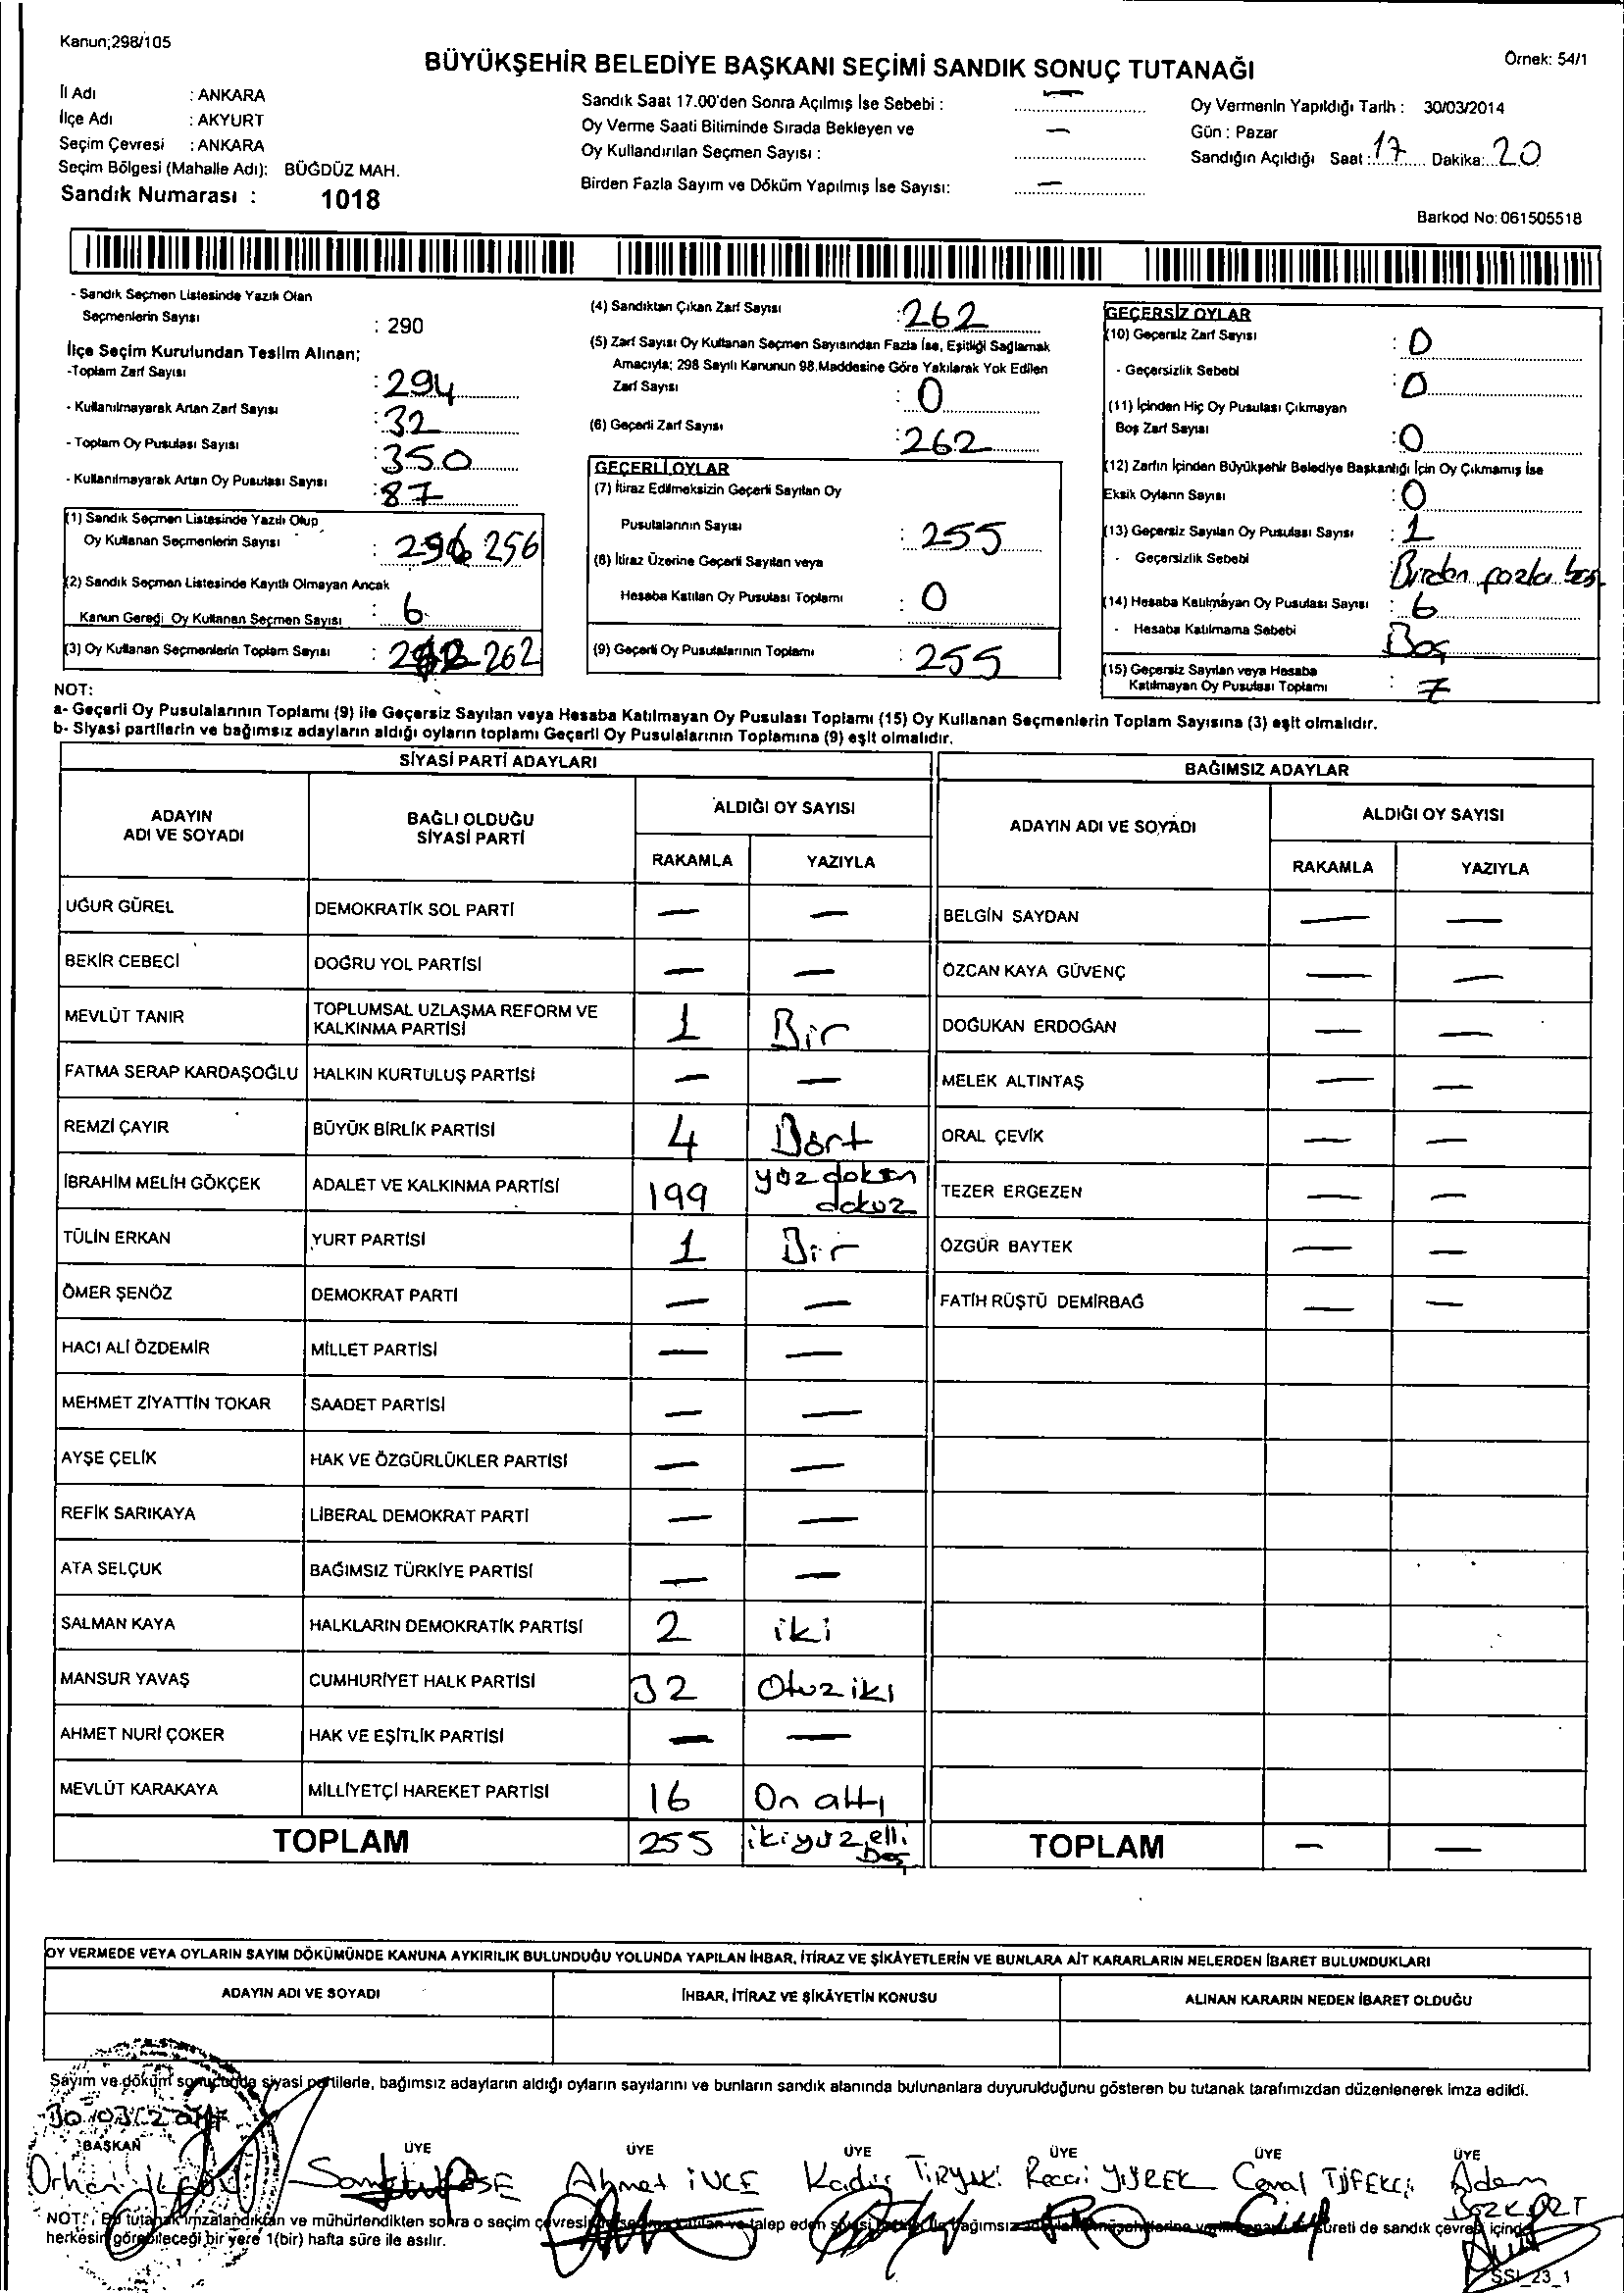 Kanun;298/105
BÜYÜKŞEHİR BELEDİYE BAŞKANI SEÇİMİ SANDIK SONUÇ TUTANAĞI
Örnek: 54/1
İl Adı : ANKARA
İlçe Adı : AKYURT
Seçim Çevresi : ANKARA
Seçim Bölgesi (Mahalle Adı): BÜĞDÜZ MAH.
Sandık Numarası : 1018
Sandık Saat 17.00'den Sonra Açılmış İse Sebebi : —
Oy Verme Saati Bitiminde Sırada Bekleyen ve
Oy Kullandırılan Seçmen Sayısı : —
Birden Fazla Sayım ve Döküm Yapılmış İse Sayısı: —
Oy Vermenin Yapıldığı Tarih : 30/03/2014
Gün : Pazar
Sandığın Açıldığı Saat : 17 Dakika: 20
Barkod No: 061505518
- Sandık Seçmen Listesinde Yazılı Olan
Seçmenlerin Sayısı : 290
İlçe Seçim Kurulundan Teslim Alınan;
-Toplam Zarf Sayısı : 294
- Kullanılmayarak Artan Zarf Sayısı : 32
- Toplam Oy Pusulası Sayısı : 350
- Kullanılmayarak Artan Oy Pusulası Sayısı : 87
(1) Sandık Seçmen Listesinde Yazılı Olup
Oy Kullanan Seçmenlerin Sayısı : 256
(2) Sandık Seçmen Listesinde Kayıtlı Olmayan Ancak
Kanun Gereği Oy Kullanan Seçmen Sayısı : 6
(3) Oy Kullanan Seçmenlerin Toplam Sayısı : 262
(4) Sandıktan Çıkan Zarf Sayısı : 262
(5) Zarf Sayısı Oy Kullanan Seçmen Sayısından Fazla İse, Eşitliği Sağlamak
Amacıyla; 298 Sayılı Kanunun 98.Maddesine Göre Yakılarak Yok Edilen
Zarf Sayısı : 0
(6) Geçerli Zarf Sayısı : 262
GEÇERLİ OYLAR
(7) İtiraz Edilmeksizin Geçerli Sayılan Oy
Pusulalarının Sayısı : 255
(8) İtiraz Üzerine Geçerli Sayılan veya
Hesaba Katılan Oy Pusulası Toplamı : 0
(9) Geçerli Oy Pusulalarının Toplamı : 255
GEÇERSİZ OYLAR
(10) Geçersiz Zarf Sayısı : 0
- Geçersizlik Sebebi : 0
(11) İçinden Hiç Oy Pusulası Çıkmayan
Boş Zarf Sayısı : 0
(12) Zarfın İçinden Büyükşehir Belediye Başkanlığı İçin Oy Çıkmamış İse
Eksik Oyların Sayısı : 0
(13) Geçersiz Sayılan Oy Pusulası Sayısı : 1
- Geçersizlik Sebebi : Birden fazla
(14) Hesaba Katılmayan Oy Pusulası Sayısı : 6
- Hesaba Katılmama Sebebi Boş
(15) Geçersiz Sayılan veya Hesaba
Katılmayan Oy Pusulası Toplamı : 7
NOT:
a- Geçerli Oy Pusulalarının Toplamı (9) ile Geçersiz Sayılan veya Hesaba Katılmayan Oy Pusulası Toplamı (15) Oy Kullanan Seçmenlerin Toplam Sayısına (3) eşit olmalıdır.
b- Siyasi partilerin ve bağımsız adayların aldığı oyların toplamı Geçerli Oy Pusulalarının Toplamına (9) eşit olmalıdır.
SİYASİ PARTİ ADAYLARI
ADAYIN ADI VE SOYADI
BAĞLI OLDUĞU SİYASİ PARTİ
ALDIĞI OY SAYISI
RAKAMLA YAZIYLA
UĞUR GÜREL DEMOKRATİK SOL PARTİ — —
BEKİR CEBECİ DOĞRU YOL PARTİSİ — —
MEVLÜT TANIR TOPLUMSAL UZLAŞMA REFORM VE KALKINMA PARTİSİ 1 Bir
FATMA SERAP KARDAŞOĞLU HALKIN KURTULUŞ PARTİSİ — —
REMZİ ÇAYIR BÜYÜK BİRLİK PARTİSİ 4 Dört
İBRAHİM MELİH GÖKÇEK ADALET VE KALKINMA PARTİSİ 199 yüz doksn dokuz
TÜLİN ERKAN YURT PARTİSİ 1 Bir
ÖMER ŞENÖZ DEMOKRAT PARTİ — —
HACI ALİ ÖZDEMİR MİLLET PARTİSİ — —
MEHMET ZİYATTİN TOKAR SAADET PARTİSİ — —
AYŞE ÇELİK HAK VE ÖZGÜRLÜKLER PARTİSİ — —
REFİK SARIKAYA LİBERAL DEMOKRAT PARTİ — —
ATA SELÇUK BAĞIMSIZ TÜRKİYE PARTİSİ — —
SALMAN KAYA HALKLARIN DEMOKRATİK PARTİSİ 2 iki
MANSUR YAVAŞ CUMHURİYET HALK PARTİSİ 32 Otuz iki
AHMET NURİ ÇOKER HAK VE EŞİTLİK PARTİSİ — —
MEVLÜT KARAKAYA MİLLİYETÇİ HAREKET PARTİSİ 16 On altı
TOPLAM 255 ikiyüz elli Beş
BAĞIMSIZ ADAYLAR
ADAYIN ADI VE SOYADI
ALDIĞI OY SAYISI
RAKAMLA YAZIYLA
BELGİN SAYDAN — —
ÖZCAN KAYA GÜVENÇ — —
DOĞUKAN ERDOĞAN — —
MELEK ALTINTAŞ — —
ORAL ÇEVİK — —
TEZER ERGEZEN — —
ÖZGÜR BAYTEK — —
FATİH RÜŞTÜ DEMİRBAĞ — —
TOPLAM — —
OY VERMEDE VEYA OYLARIN SAYIM DÖKÜMÜNDE KANUNA AYKIRILIK BULUNDUĞU YOLUNDA YAPILAN İHBAR, İTİRAZ VE ŞİKÂYETLERİN VE BUNLARA AİT KARARLARIN NELERDEN İBARET BULUNDUKLARI
ADAYIN ADI VE SOYADI İHBAR, İTİRAZ VE ŞİKÂYETİN KONUSU ALINAN KARARIN NEDEN İBARET OLDUĞU
Sayım ve döküm sonucunda siyasi partilerle, bağımsız adayların aldığı oyların sayılarını ve bunların sandık alanında bulunanlara duyurulduğunu gösteren bu tutanak tarafımızdan düzenlenerek imza edildi.
30/03/2014
BAŞKAN ÜYE ÜYE ÜYE ÜYE ÜYE ÜYE
Orhan Ahmet İNCE Kadir TİRYAKİ Recai YÜREK Cemal TÜFEKÇİ Adem BOZKURT
NOT: Bu tutanak imzalandıktan ve mühürlendikten sonra o seçim çevresi talep eden sureti de sandık çevresi içinde
herkesin görebileceği bir yere 1(bir) hafta süre ile asılır.
SSI_23_1